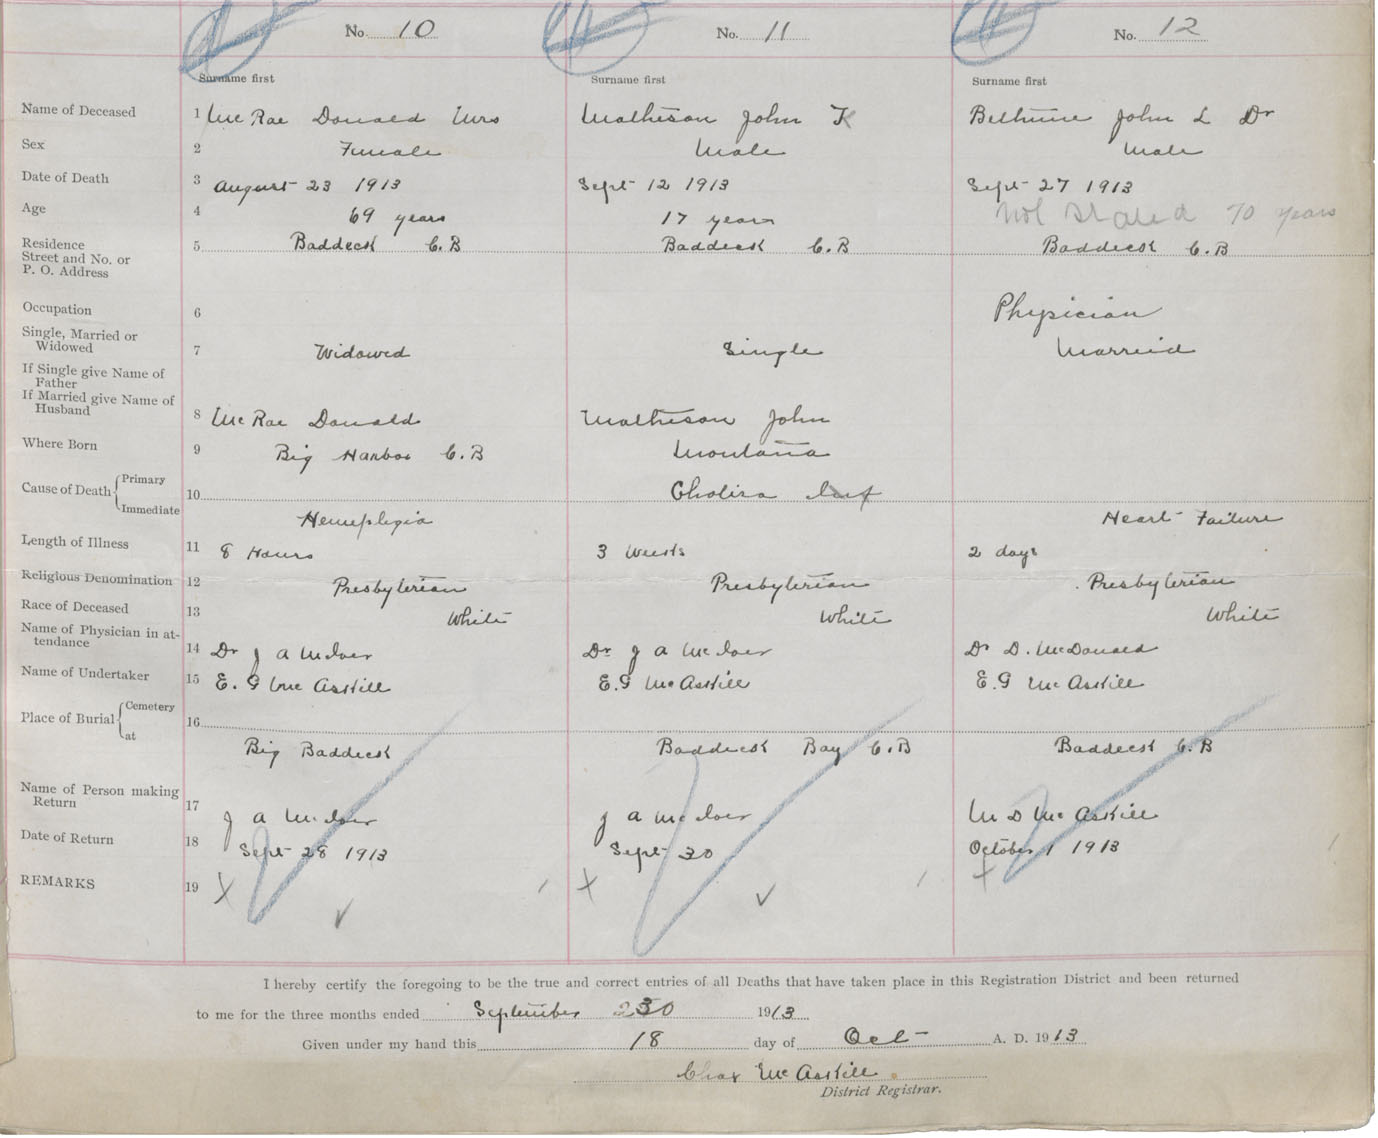 No. 10 No. 11 No. 12
Surname first Surname first Surname first
Name of Deceased 1 McRae Donald Mrs Matheson John K Bethune John L Dr
Sex 2 Female Male Male
Date of Death 3 August 23 1913 Sept 12 1913 Sept 27 1913
Age 4 69 years 17 years Not Stated 70 years
Residence
Street and No. or
P. O. Address 5 Baddeck C.B Baddeck C.B Baddeck C.B
Occupation 6 Physician
Single, Married or
Widowed 7 Widowed Single Marreid
If Single give Name of
Father
If Married give Name of
Husband 8 McRae Donald Matheson John
Where Born 9 Big Harbor C.B Montana
Cause of Death Primary 10 Cholira Inf
Immediate Hemeplegia Heart Failure
Length of Illness 11 8 Hours 3 Weeks 2 days
Religious Denomination 12 Presbyterian Presbyterian Presbyterian
Race of Deceased 13 White White White
Name of Physician in at-
tendance 14 Dr J A McIver Dr J A McIver Dr D. McDonald
Name of Undertaker 15 E. G McAskill E.G McAskill E.G McAskill
Place of Burial Cemetery 16
at Big Baddeck Baddeck Bay C.B Baddeck C.B
Name of Person making
Return 17 J A McIver J A McIver M D McAskill
Date of Return 18 Sept 28 1913 Sept 30 October 1 1913
REMARKS 19 X X X
I hereby certify the foregoing to be the true and correct entries of all Deaths that have taken place in this Registration District and been returned
to me for the three months ended September 30 1913
Given under my hand this 18 day of Oct A. D. 1913
Chas McAskill
District Registrar.